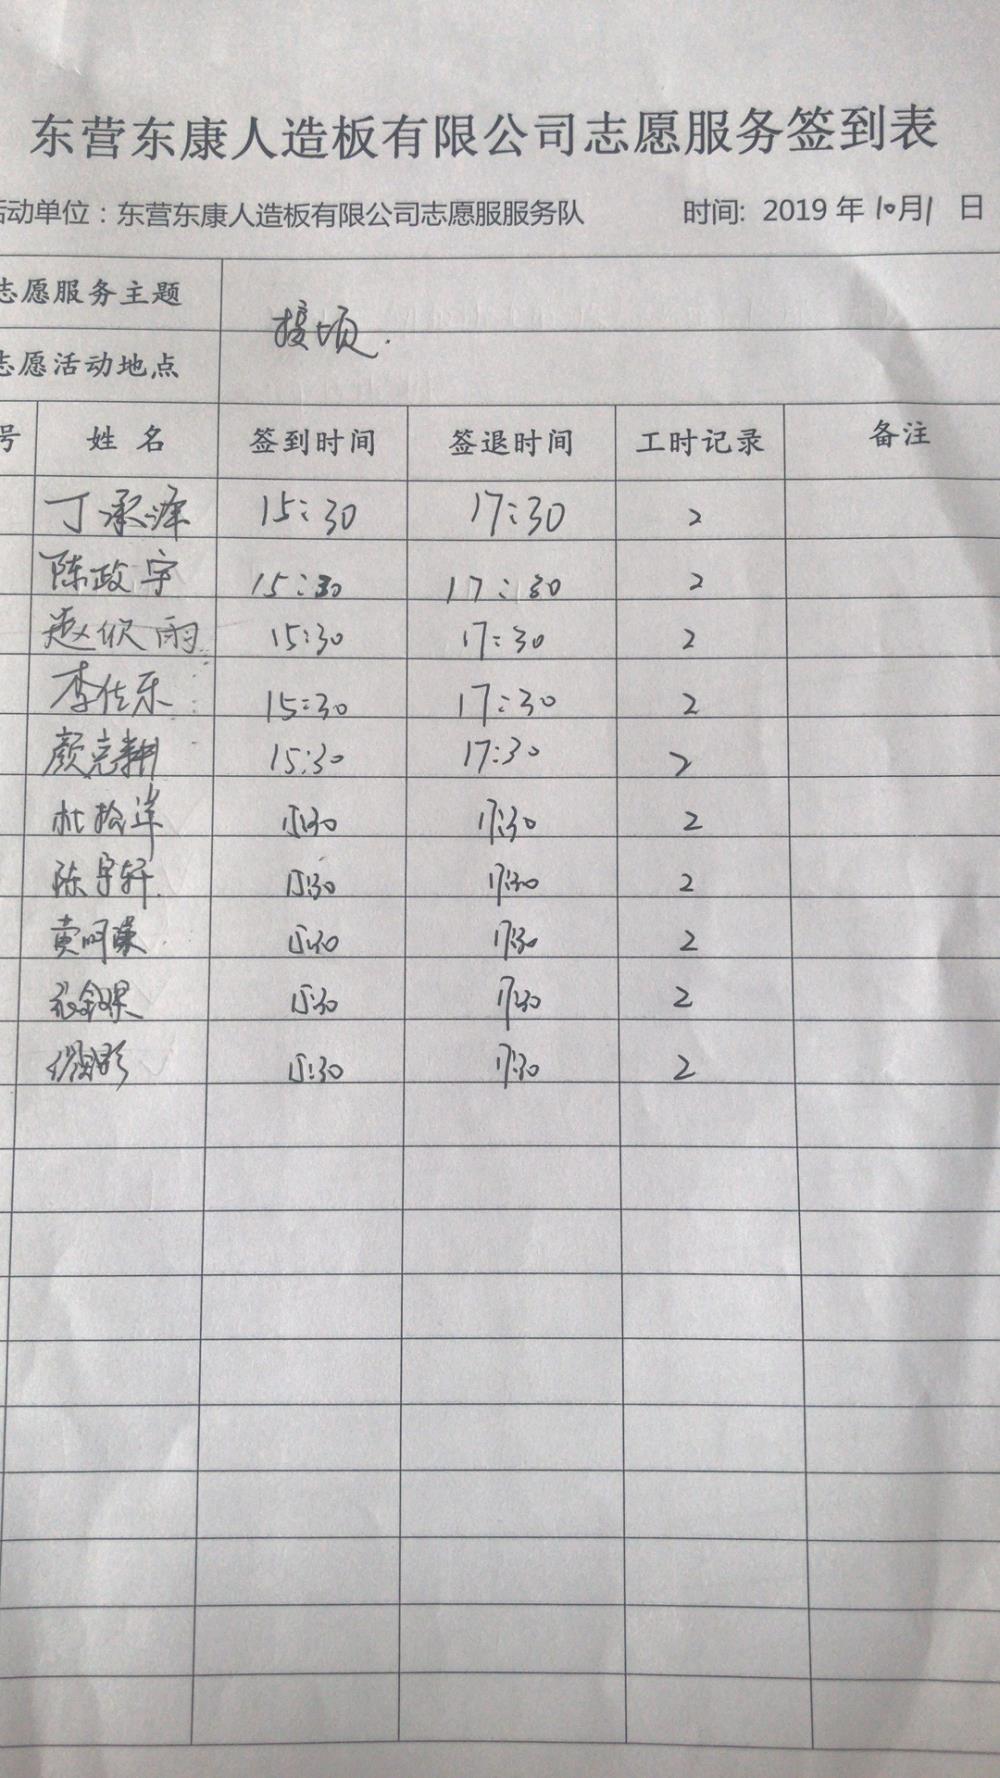 东营东康人造板有限公司志愿服务签到表
活动单位：东营东康人造板有限公司志愿服服务队 时间: 2019 年 10月1 日
志愿服务主题
志愿活动地点
号 姓 名 签到时间 签退时间 工时记录 备注
丁承泽 15:30 17:30 2
陈政宇 15:30 17:30 2
赵欣雨 15:30 17:30 2
李佳乐 15:30 17:30 2
颜克翔 15:30 17:30 2
杜松岸 15:30 17:30 2
陈宇轩 15:30 17:30 2
黄 15:30 17:30 2
15:30 17:30 2
15:30 17:30 2